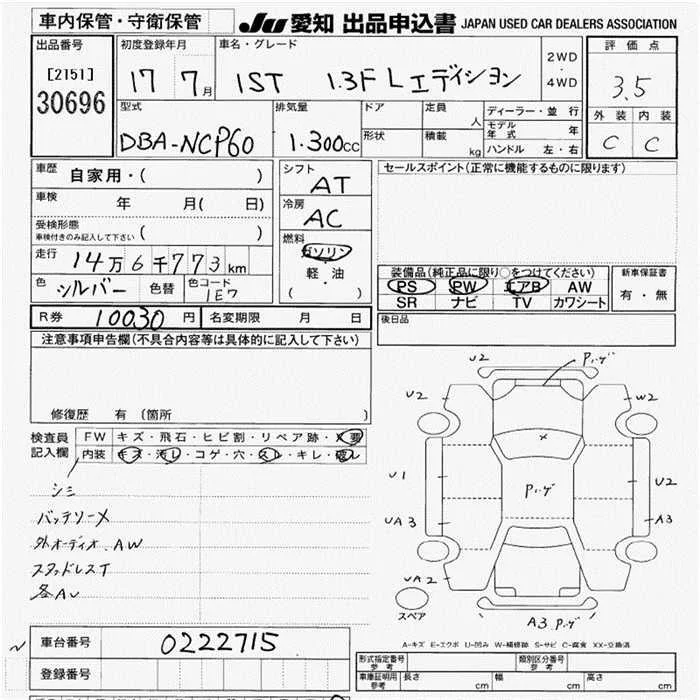 車内保管・守衛保管 JU 愛知 出品申込書 JAPAN USED CAR DEALERS ASSOCIATION
出品番号 初度登録年月 車名・グレード 2WD・4WD 評価点
[2151] 30696 17 7月 IST 1.3F Lエディション 3.5
外装 内装
C C
型式 排気量 ドア 定員 人 ディーラー・並行
DBA-NCP60 1.300cc 形状 積載 kg モデル年式 年
ハンドル 左・右
車歴 自家用・( ) シフト AT セールスポイント(正常に機能するものに限ります)
車検 年 月( 日) 冷房 AC
受検形態 車検付きのみ記入して下さい ( ) 燃料 ガソリン
走行 14万6千773km 軽・油 ( )
装備品(純正品に限り○をつけてください) 新車保証書
PS PW エアB AW 有・無
SR ナビ TV カワシート
色 シルバー 色替 色コード 1E7
後日品
R券 10030円 名変期限 月 日
注意事項申告欄(不具合内容等は具体的に記入して下さい)
修復歴 有 (箇所 )
検査員記入欄 FW キズ・飛石・ヒビ割・リペア跡・メ要
内装 キズ・汚レ・コゲ・穴・スレ・キレ・破レ
シミ
バッテリーメ
外オーディオ.AW
スタッドレスT
各AU
U2 Pハゲ
U2 W2
X
U1 Pハゲ U2
UA3 A3
UA2
スペア
A3 Pハゲ
A-キズ E-エクボ U-凹み W-補修跡 S-サビ C-腐食 XX-交換済
車台番号 0222715
登録番号
形式指定番号 参考 類別区分番号 参考
車庫証明用 参考 長さ cm 幅 cm 高さ cm